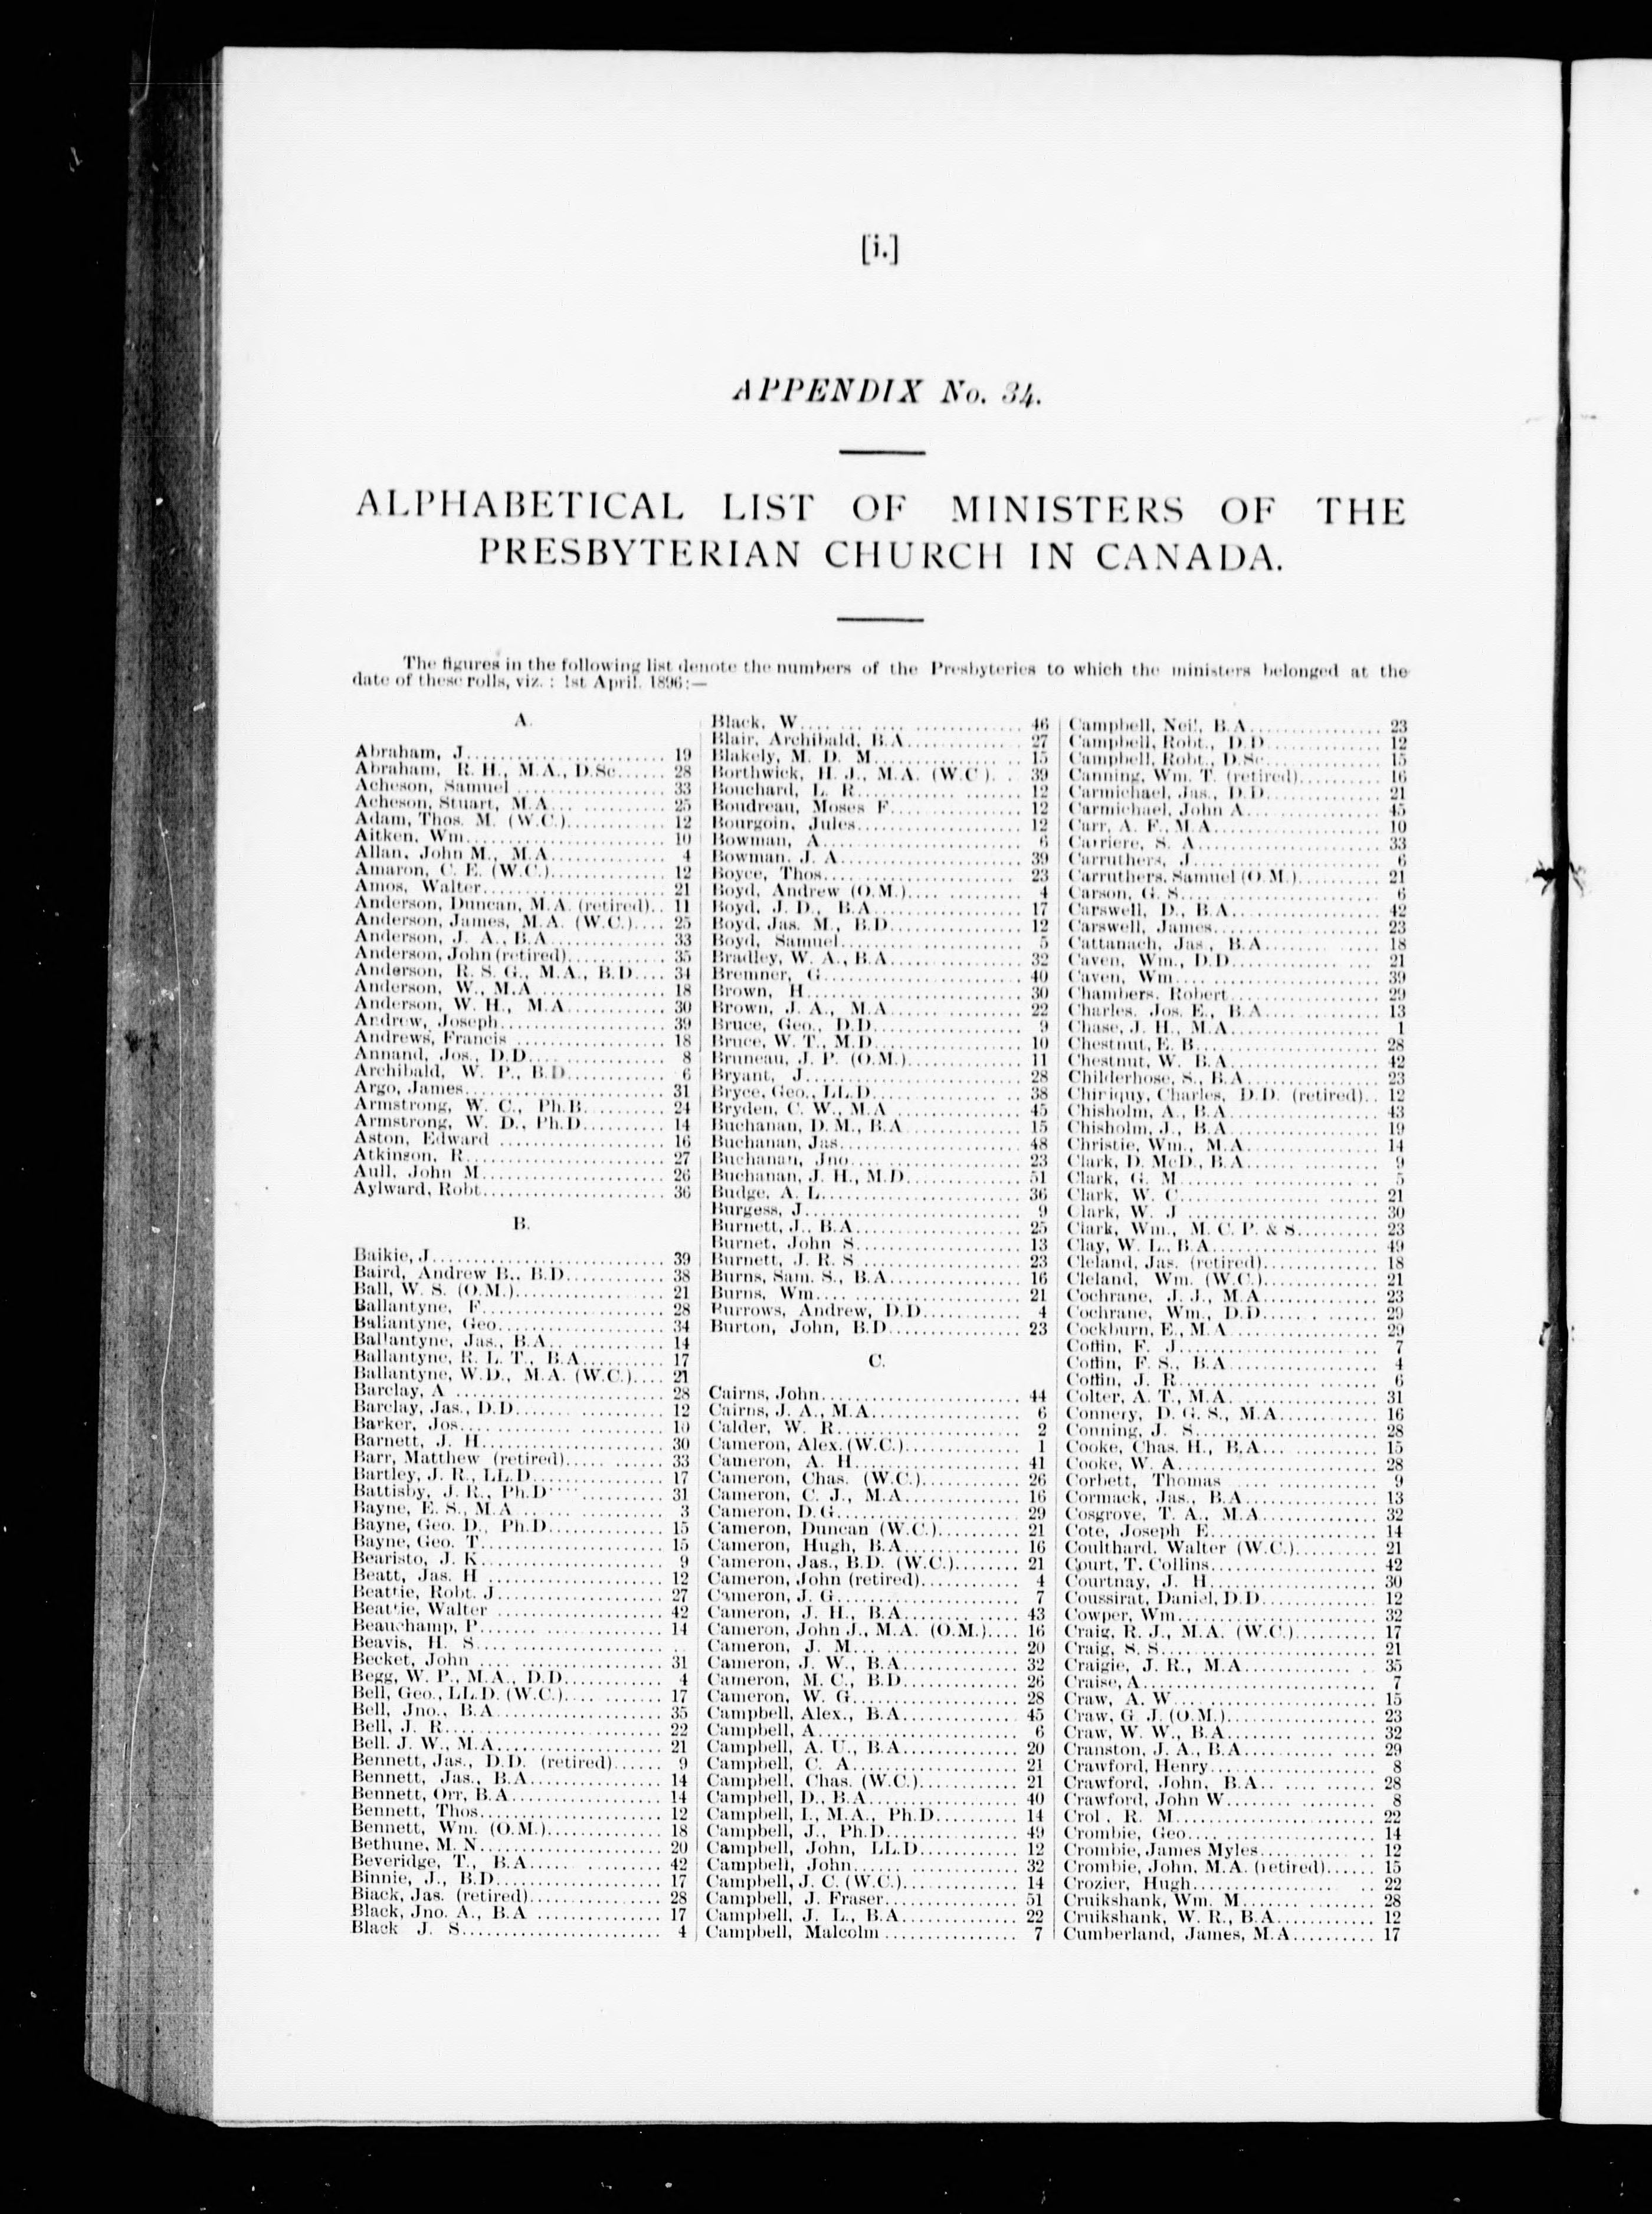 [i.]
APPENDIX No. 34.
ALPHABETICAL LIST OF MINISTERS OF THE
PRESBYTERIAN CHURCH IN CANADA.
The figures in the following list denote the numbers of the Presbyteries to which the ministers belonged at the
date of these rolls, viz. : 1st April, 1896:—
A.
Abraham, J. 19
Abraham, R. H., M.A., D.Sc. 28
Acheson, Samuel 33
Acheson, Stuart, M.A. 25
Adam, Thos. M. (W.C.) 12
Aitken, Wm. 10
Allan, John M., M.A. 4
Amaron, C. E. (W.C.) 12
Amos, Walter 21
Anderson, Duncan, M.A. (retired) 11
Anderson, James, M.A. (W.C.) 25
Anderson, J. A., B.A. 33
Anderson, John (retired) 35
Anderson, R. S. G., M.A., B.D. 34
Anderson, W., M.A. 18
Anderson, W. H., M.A. 30
Andrew, Joseph 39
Andrews, Francis 18
Annand, Jos., D.D. 8
Archibald, W. P., B.D. 6
Argo, James 31
Armstrong, W. C., Ph.B. 24
Armstrong, W. D., Ph.D. 14
Aston, Edward 16
Atkinson, R. 27
Aull, John M. 26
Aylward, Robt. 36
B.
Baikie, J. 39
Baird, Andrew B., B.D. 38
Ball, W. S. (O.M.) 21
Ballantyne, F. 28
Ballantyne, Geo. 34
Ballantyne, Jas., B.A. 14
Ballantyne, R. L. T., B.A. 17
Ballantyne, W.D., M.A. (W.C.) 21
Barclay, A. 28
Barclay, Jas., D.D. 12
Barker, Jos. 10
Barnett, J. H. 30
Barr, Matthew (retired) 33
Bartley, J. R., LL.D. 17
Battisby, J. R., Ph.D. 31
Bayne, E. S., M.A. 3
Bayne, Geo. D., Ph.D. 15
Bayne, Geo. T. 15
Bearisto, J. K. 9
Beatt, Jas. H. 12
Beattie, Robt. J. 27
Beattie, Walter 42
Beauchamp, P. 14
Beavis, H. S.
Becket, John 31
Begg, W. P., M.A., D.D. 4
Bell, Geo., LL.D. (W.C.) 17
Bell, Jno., B.A. 35
Bell, J. R. 22
Bell. J. W., M.A. 21
Bennett, Jas., D.D. (retired) 9
Bennett, Jas., B.A. 14
Bennett, Orr, B.A. 14
Bennett, Thos. 12
Bennett, Wm. (O.M.) 18
Bethune, M. N. 20
Beveridge, T., B.A. 42
Binnie, J., B.D. 17
Black, Jas. (retired) 28
Black, Jno. A., B.A. 17
Black J. S. 4
Black, W. 46
Blair, Archibald, B.A. 27
Blakely, M. D. M. 15
Borthwick, H. J., M.A. (W.C.) 39
Bouchard, L. R. 12
Boudreau, Moses F. 12
Bourgoin, Jules 12
Bowman, A. 6
Bowman, J. A. 39
Boyce, Thos. 23
Boyd, Andrew (O.M.) 4
Boyd, J. D., B.A. 17
Boyd, Jas. M., B.D. 12
Boyd, Samuel 5
Bradley, W. A., B.A. 32
Bremner, G. 40
Brown, H. 30
Brown, J. A., M.A. 22
Bruce, Geo., D.D. 9
Bruce, W. T., M.D. 10
Bruneau, J. P. (O.M.) 11
Bryant, J. 28
Bryce, Geo., LL.D. 38
Bryden, C. W., M.A. 45
Buchanan, D. M., B.A. 15
Buchanan, Jas. 48
Buchanan, Jno. 23
Buchanan, J. H., M.D. 51
Budge, A. L. 36
Burgess, J. 9
Burnett, J., B.A. 25
Burnet, John S. 13
Burnett, J. R. S. 23
Burns, Sam. S., B.A. 16
Burns, Wm. 21
Burrows, Andrew, D.D. 4
Burton, John, B.D. 23
C.
Cairns, John 44
Cairns, J. A., M.A. 6
Calder, W. R. 2
Cameron, Alex. (W.C.) 1
Cameron, A. H. 41
Cameron, Chas. (W.C.) 26
Cameron, C. J., M.A. 16
Cameron, D. G. 29
Cameron, Duncan (W.C.) 21
Cameron, Hugh, B.A. 16
Cameron, Jas., B.D. (W.C.) 21
Cameron, John (retired) 4
Cameron, J. G. 7
Cameron, J. H., B.A. 43
Cameron, John J., M.A. (O.M.) 16
Cameron, J. M. 20
Cameron, J. W., B.A. 32
Cameron, M. C., B.D. 26
Cameron, W. G. 28
Campbell, Alex., B.A. 45
Campbell, A. 6
Campbell, A. U., B.A. 20
Campbell, C. A. 21
Campbell, Chas. (W.C.) 21
Campbell, D., B.A. 40
Campbell, I., M.A., Ph.D. 14
Campbell, J., Ph.D. 49
Campbell, John, LL.D. 12
Campbell, John 32
Campbell, J. C. (W.C.) 14
Campbell, J. Fraser 51
Campbell, J. L., B.A. 22
Campbell, Malcolm 7
Campbell, Neil, B.A. 23
Campbell, Robt., D.D. 12
Campbell, Robt., D.Sc. 15
Canning, Wm. T. (retired) 16
Carmichael, Jas., D.D. 21
Carmichael, John A. 45
Carr, A. F., M.A. 10
Carriere, S. A. 33
Carruthers, J. 6
Carruthers, Samuel (O.M.) 21
Carson, G. S. 6
Carswell, D., B.A. 42
Carswell, James 23
Cattanach, Jas., B.A. 18
Caven, Wm., D.D. 21
Caven, Wm. 39
Chambers, Robert 29
Charles, Jos. E., B.A. 13
Chase, J. H., M.A. 1
Chestnut, E. B. 28
Chestnut, W. B.A. 42
Childerhose, S., B.A. 23
Chiriquy, Charles, D.D. (retired) 12
Chisholm, A., B.A. 43
Chisholm, J., B.A. 19
Christie, Wm., M.A. 14
Clark, D. McD., B.A. 9
Clark, G. M. 5
Clark, W. C. 21
Clark, W. J. 30
Clark, Wm., M. C. P. & S. 23
Clay, W. L., B.A. 49
Cleland, Jas. (retired) 18
Cleland, Wm. (W.C.) 21
Cochrane, J. J., M.A. 23
Cochrane, Wm., D.D. 29
Cockburn, E., M.A. 29
Coffin, F. J. 7
Coffin, F. S., B.A. 4
Coffin, J. R. 6
Colter, A. T., M.A. 31
Connery, D. G. S., M.A. 16
Conning, J. S. 28
Cooke, Chas. H., B.A. 15
Cooke, W. A. 28
Corbett, Thomas 9
Cormack, Jas., B.A. 13
Cosgrove, T. A., M.A. 32
Cote, Joseph E. 14
Coulthard, Walter (W.C.) 21
Court, T. Collins 42
Courtnay, J. H. 30
Coussirat, Daniel, D.D. 12
Cowper, Wm. 32
Craig, R. J., M.A. (W.C.) 17
Craig, S. S. 21
Craigie, J. R., M.A. 35
Craise, A. 7
Craw, A. W. 15
Craw, G. J. (O.M.) 23
Craw, W. W., B.A. 32
Cranston, J. A., B.A. 29
Crawford, Henry 8
Crawford, John, B.A. 28
Crawford, John W. 8
Crol , R. M. 22
Crombie, Geo. 14
Crombie, James Myles 12
Crombie, John, M.A. (retired) 15
Crozier, Hugh 22
Cruikshank, Wm. M. 28
Cruikshank, W. R., B.A. 12
Cumberland, James, M.A. 17